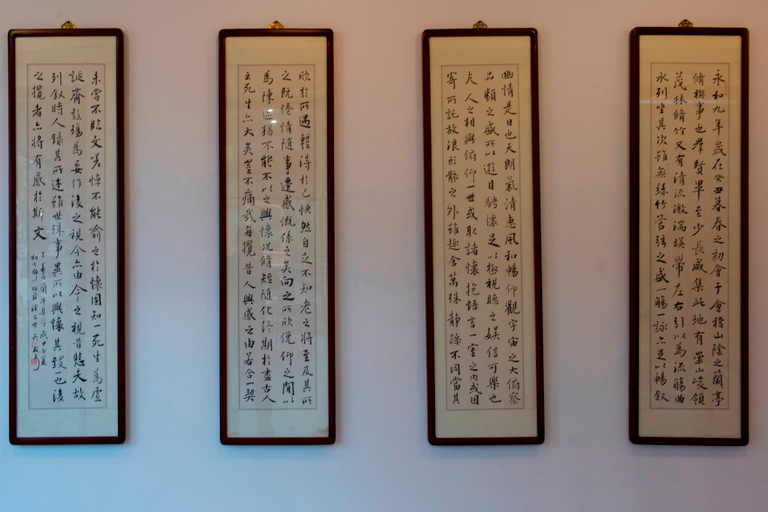 永和九年歲在癸丑暮春之初會于會稽山陰之蘭亭
脩禊事也羣賢畢至少長咸集此地有崇山峻領
茂林脩竹又有清流激湍暎帶左右引以為流觴曲
水列坐其次雖無絲竹管弦之盛一觴一詠亦足以暢叙
幽情是日也天朗氣清惠風和暢仰觀宇宙之大俯察
品類之盛所以遊目騁懷足以極視聽之娛信可樂也
夫人之相與俯仰一世或取諸懷抱悟言一室之內或因
寄所託放浪形骸之外雖趣舍萬殊靜躁不同當其
欣於所遇暫得於己快然自足不知老之將至及其所
之既惓情隨事遷感慨係之矣向之所欣俛仰之間以
為陳迹猶不能不以之興懷況脩短隨化終期於盡古人
云死生亦大矣豈不痛哉每攬昔人興感之由若合一契
未嘗不臨文嗟悼不能喻之於懷固知一死生為虛
誕齊彭殤為妄作後之視今亦由今之視昔悲夫故
列叙時人錄其所述雖世殊事異所以興懷其致一也後
之攬者亦將有感於斯文